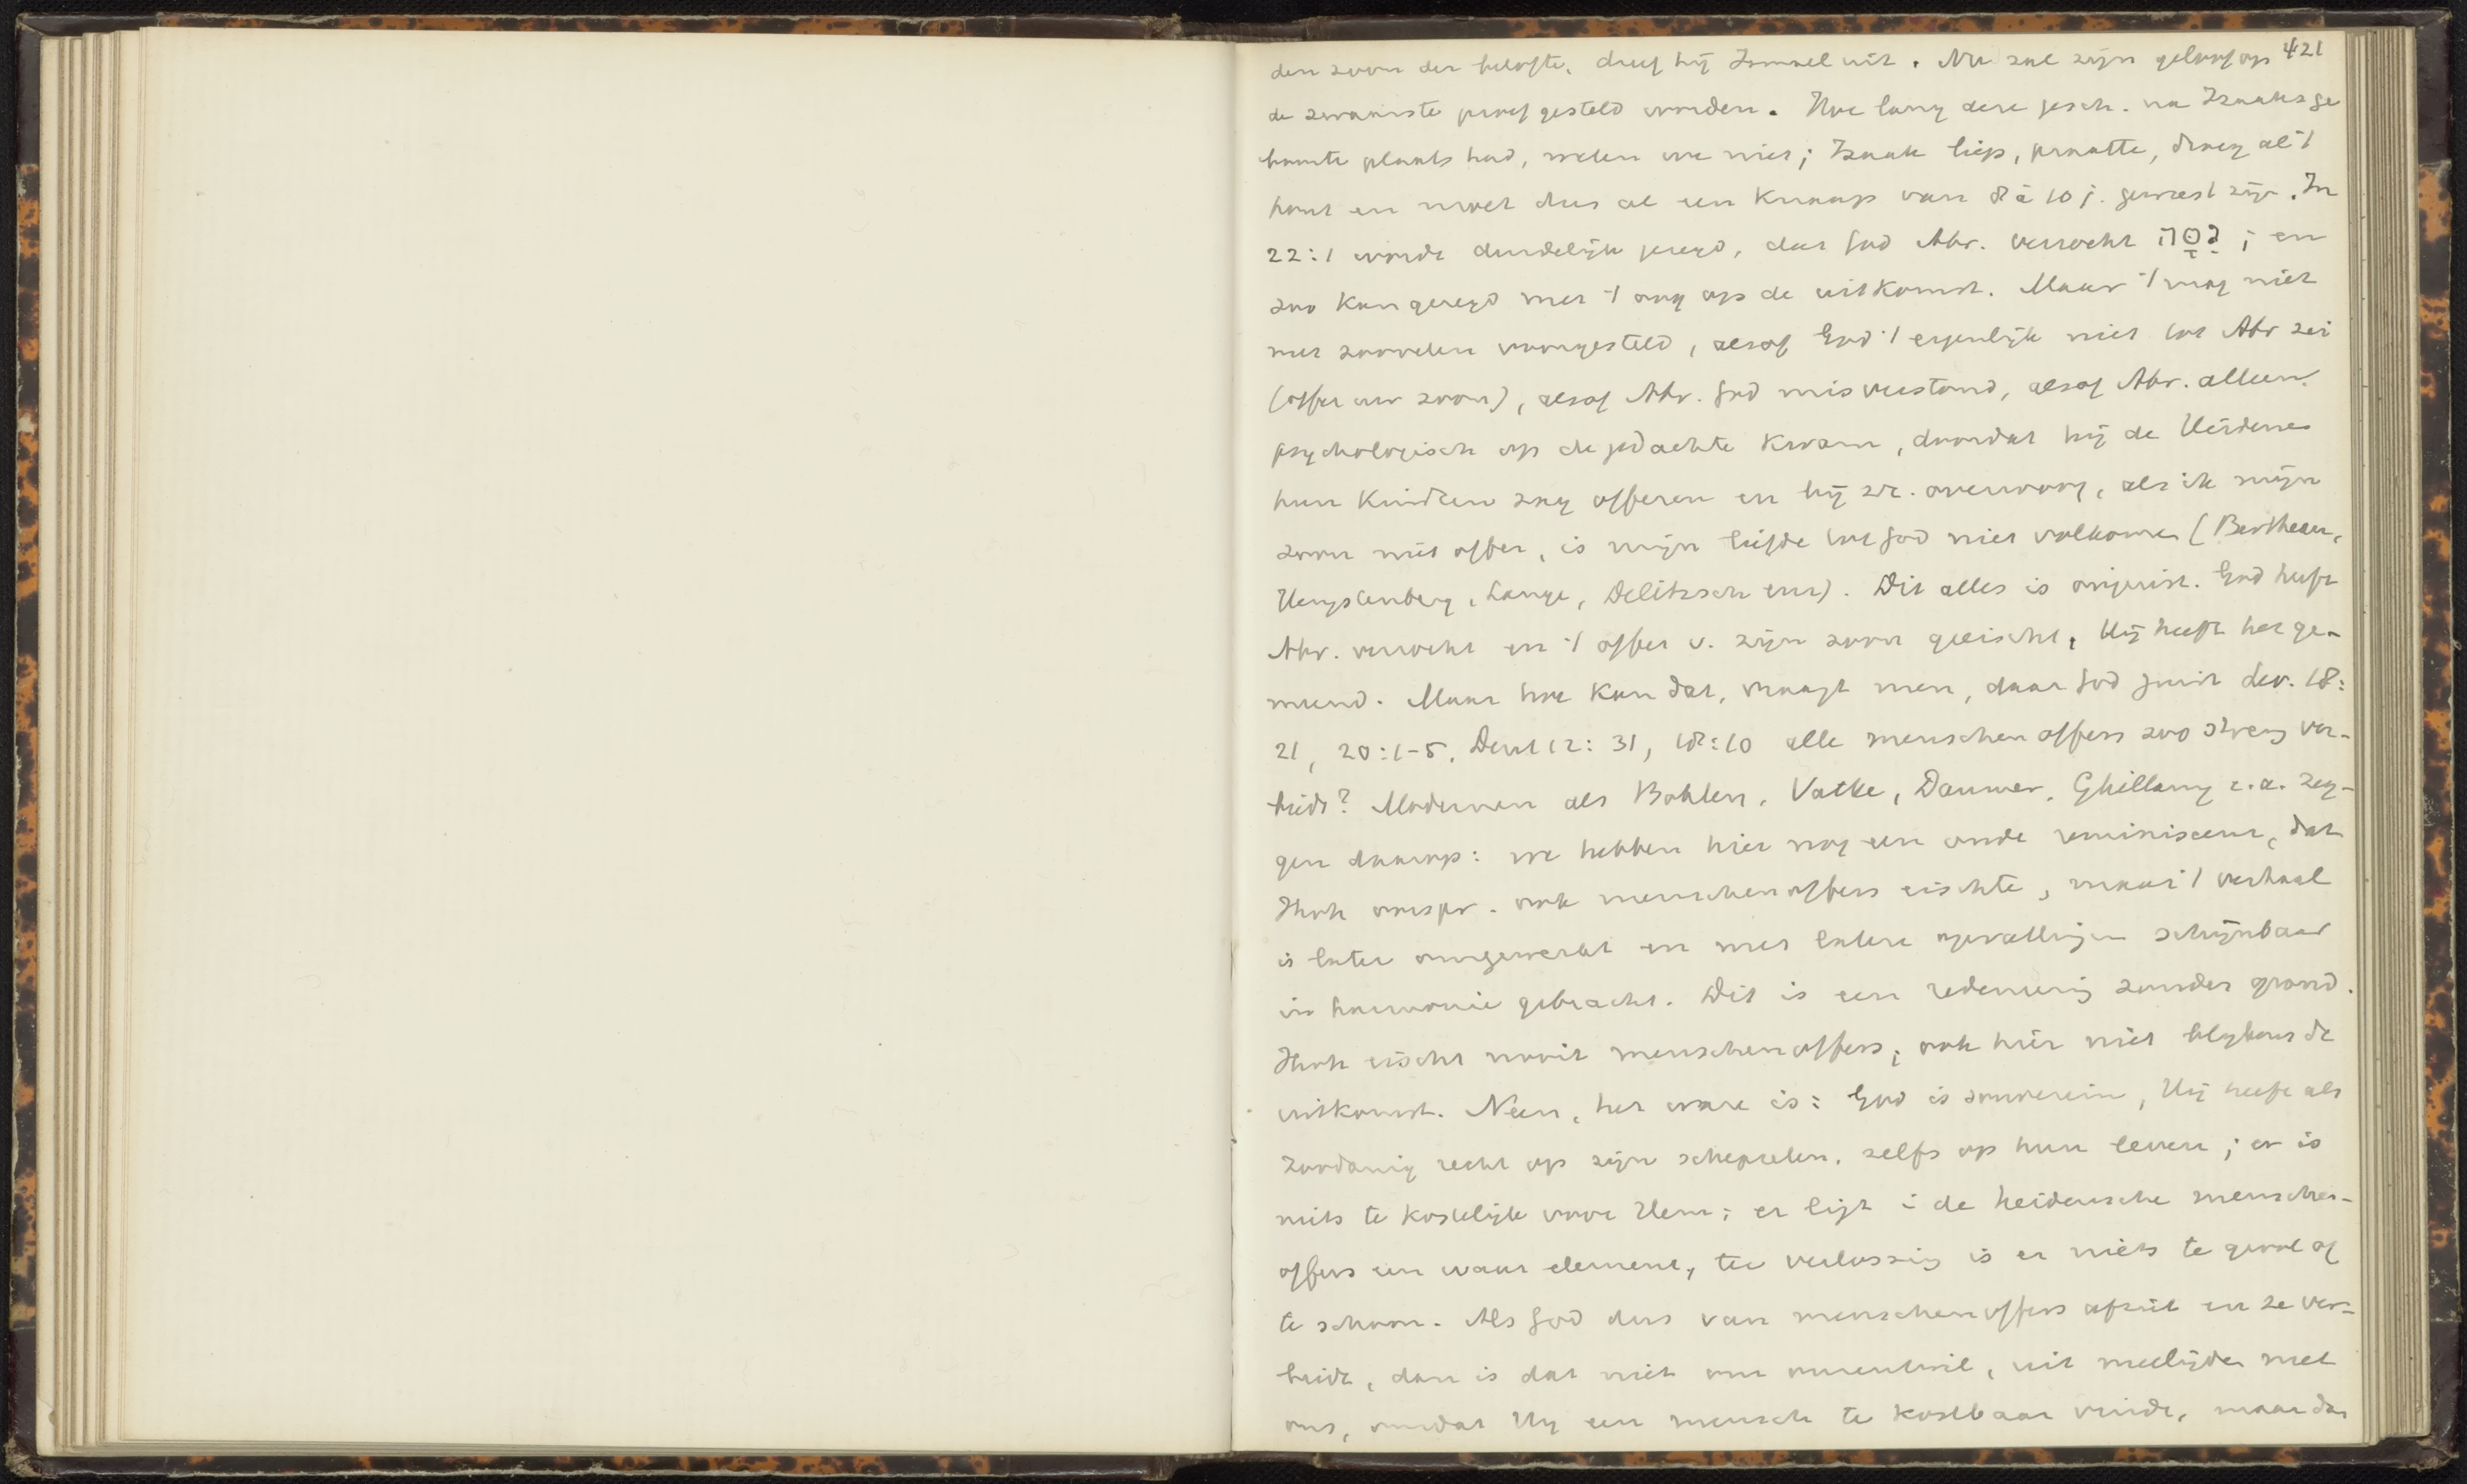 421
den zoon der belofte, dreef hij Ismael uit. Nu zal zijn geloof op
de zwaarste proef gesteld worden. Hoe lang deze gesch. na Izaaks ge
boorte plaats had, weten we niet; Izaak liep, praatte, droeg al 't
hout en moet dus al een Knaap van 8 à 10 j. geweest zijn. In
22:1 wordt duidelijk gezegd, dat God Abr. verzocht נִסָּה; en
zoo kan gezegd met 't oog op de uitkomst. Maar 't mag niet
met zoovelen voorgesteld, alsof God 't eigenlijk niet tot Abr zei
(offer uw zoon), alsof Abr. God misverstond, alsof Abr. alleen
psychologisch op de gedachte Kwam, doordat hij de Heidenen
hun Kindren zag offeren en hij zr. overwoog, als ik mijn
zoon niet offer, is mijn liefde tot God niet volkomen (Bertheau,
Hengstenberg, Lange, Delitzsch enz). Dit alles is onjuist. God heeft
Abr. verzocht en 't offer v. zijn zoon geëischt, Hij heeft het ge-
meend. Maar hoe Kan dat, vraagt men, daar God juist Lev. 18:
21, 20:1-5, Deut 12:31, 18:10 alle menschenoffers zoo streng ver-
biedt? Modernen als Bohlen, Vatke, Daumer, Ghillany e.a. zeg-
gen daarop: we hebben hier nog een oude reminiscens, dat
Jhvh oorspr. ook menschenoffers eischte, maar 't verhaal
is later omgewerkt en met latere opvattingen schijnbaar
in harmonie gebracht. Dit is een redeneering zonder grond.
Jhvh eischt nooit menschenoffers; ook hier niet blijkens de
uitkomst. Neen, het ware is: God is souverein, Hij heeft als
zoodanig recht op zijn schepselen, zelfs op hun leven; er is
niets te kostelijk voor Hem; er ligt i de heidensche menschen-
offers een waar element, ter verlossing is er niets te groot of
te schoon. Als God dus van menschenoffers afziet en ze ver-
biedt, dan is dat niet om onzentwil, uit medelijden met
ons, omdat Hij een mensch te kostbaar vindt, maar dan